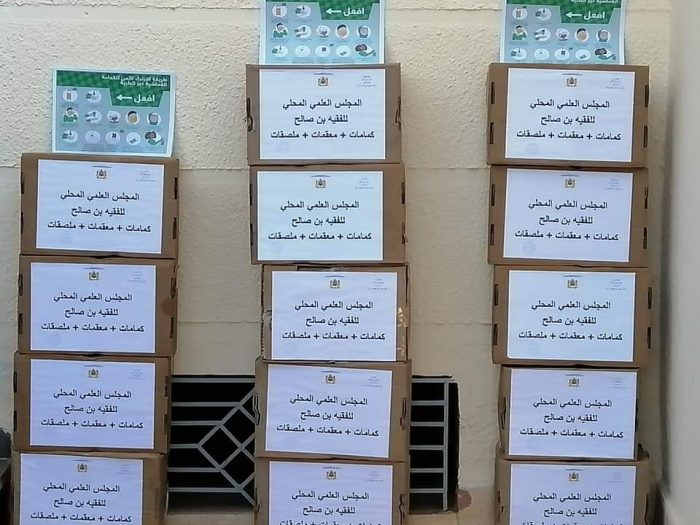 طريقة الارتداء الآمن للكمامة
القماشية غير الطبية
افعل
افعل
القماشية غير الطبية
افعل
المجلس العلمي المحلي
للفقيه بن صالح
كمامات + معقمات + ملصقات
المجلس العلمي المحلي
للفقيه بن صالح
كمامات + معقمات + ملصقات
المجلس العلمي المحلي
للفقيه بن صالح
كمامات + معقمات + ملصقات
المجلس العلمي المحلي
للفقيه بن صالح
كمامات + معقمات + ملصقات
المجلس العلمي المحلي
للفقيه بن صالح
كمامات + معقمات + ملصقات
المجلس العلمي المحلي
للفقيه بن صالح
كمامات + معقمات + ملصقات
المجلس العلمي المحلي
للفقيه بن صالح
كمامات + معقمات + ملصقات
المجلس العلمي المحلي
للفقيه بن صالح
كمامات + معقمات + ملصقات
المجلس العلمي المحلي
للفقيه بن صالح
كمامات + معقمات + ملصقات
المجلس العلمي المحلي
للفقيه بن صالح
كمامات + معقمات + ملصقات
المجلس العلمي المحلي
للفقيه بن صالح
كمامات + معقمات + ملصقات
المجلس العلمي المحلي
للفقيه بن صالح
كمامات + معقمات + ملصقات
المجلس العلمي المحلي
للفقيه بن صالح
كمامات + معقمات + ملصقات
المجلس العلمي المحلي
للفقيه بن صالح
كمامات + معقمات + ملصقات